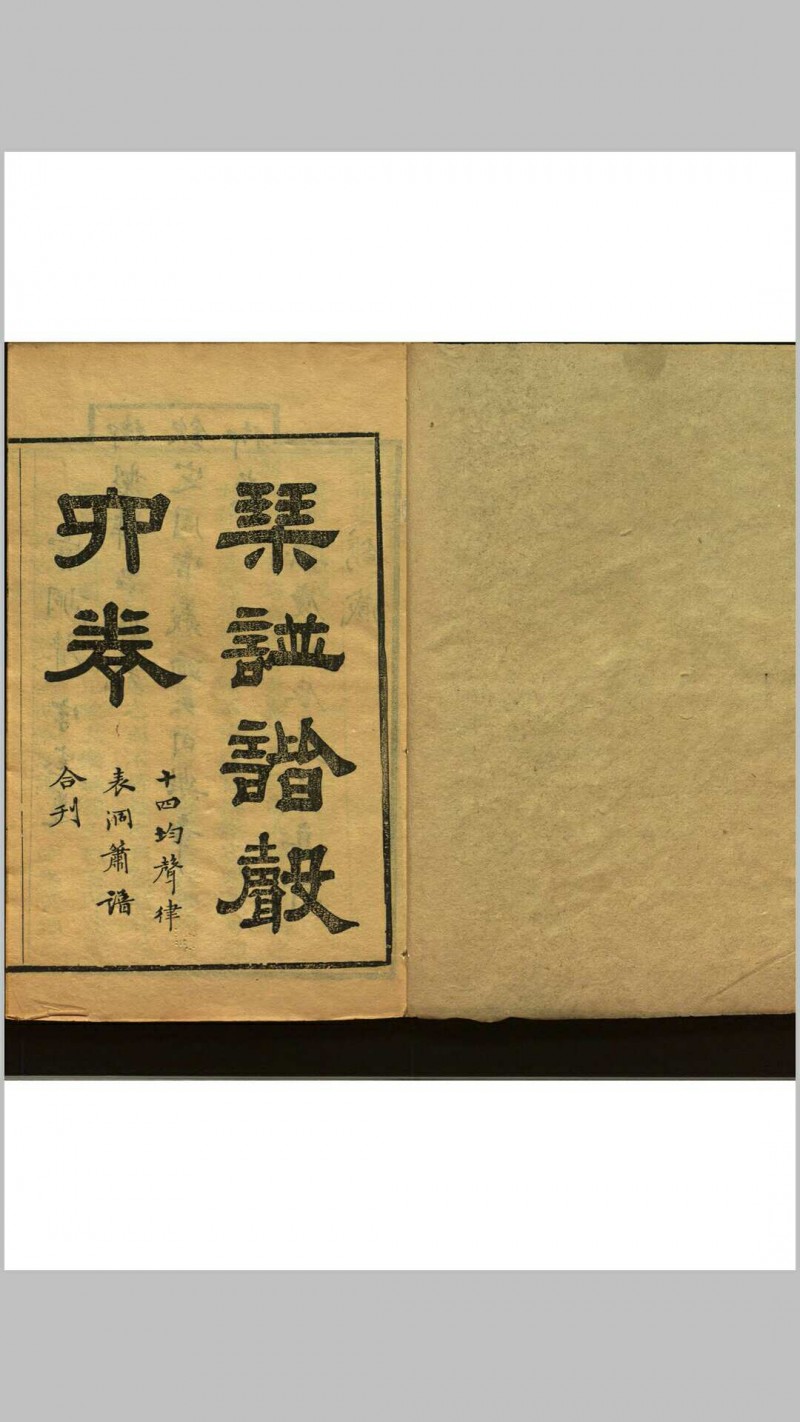 琴譜諧聲
卯卷
十四均聲律
表洞簫譜
合刊